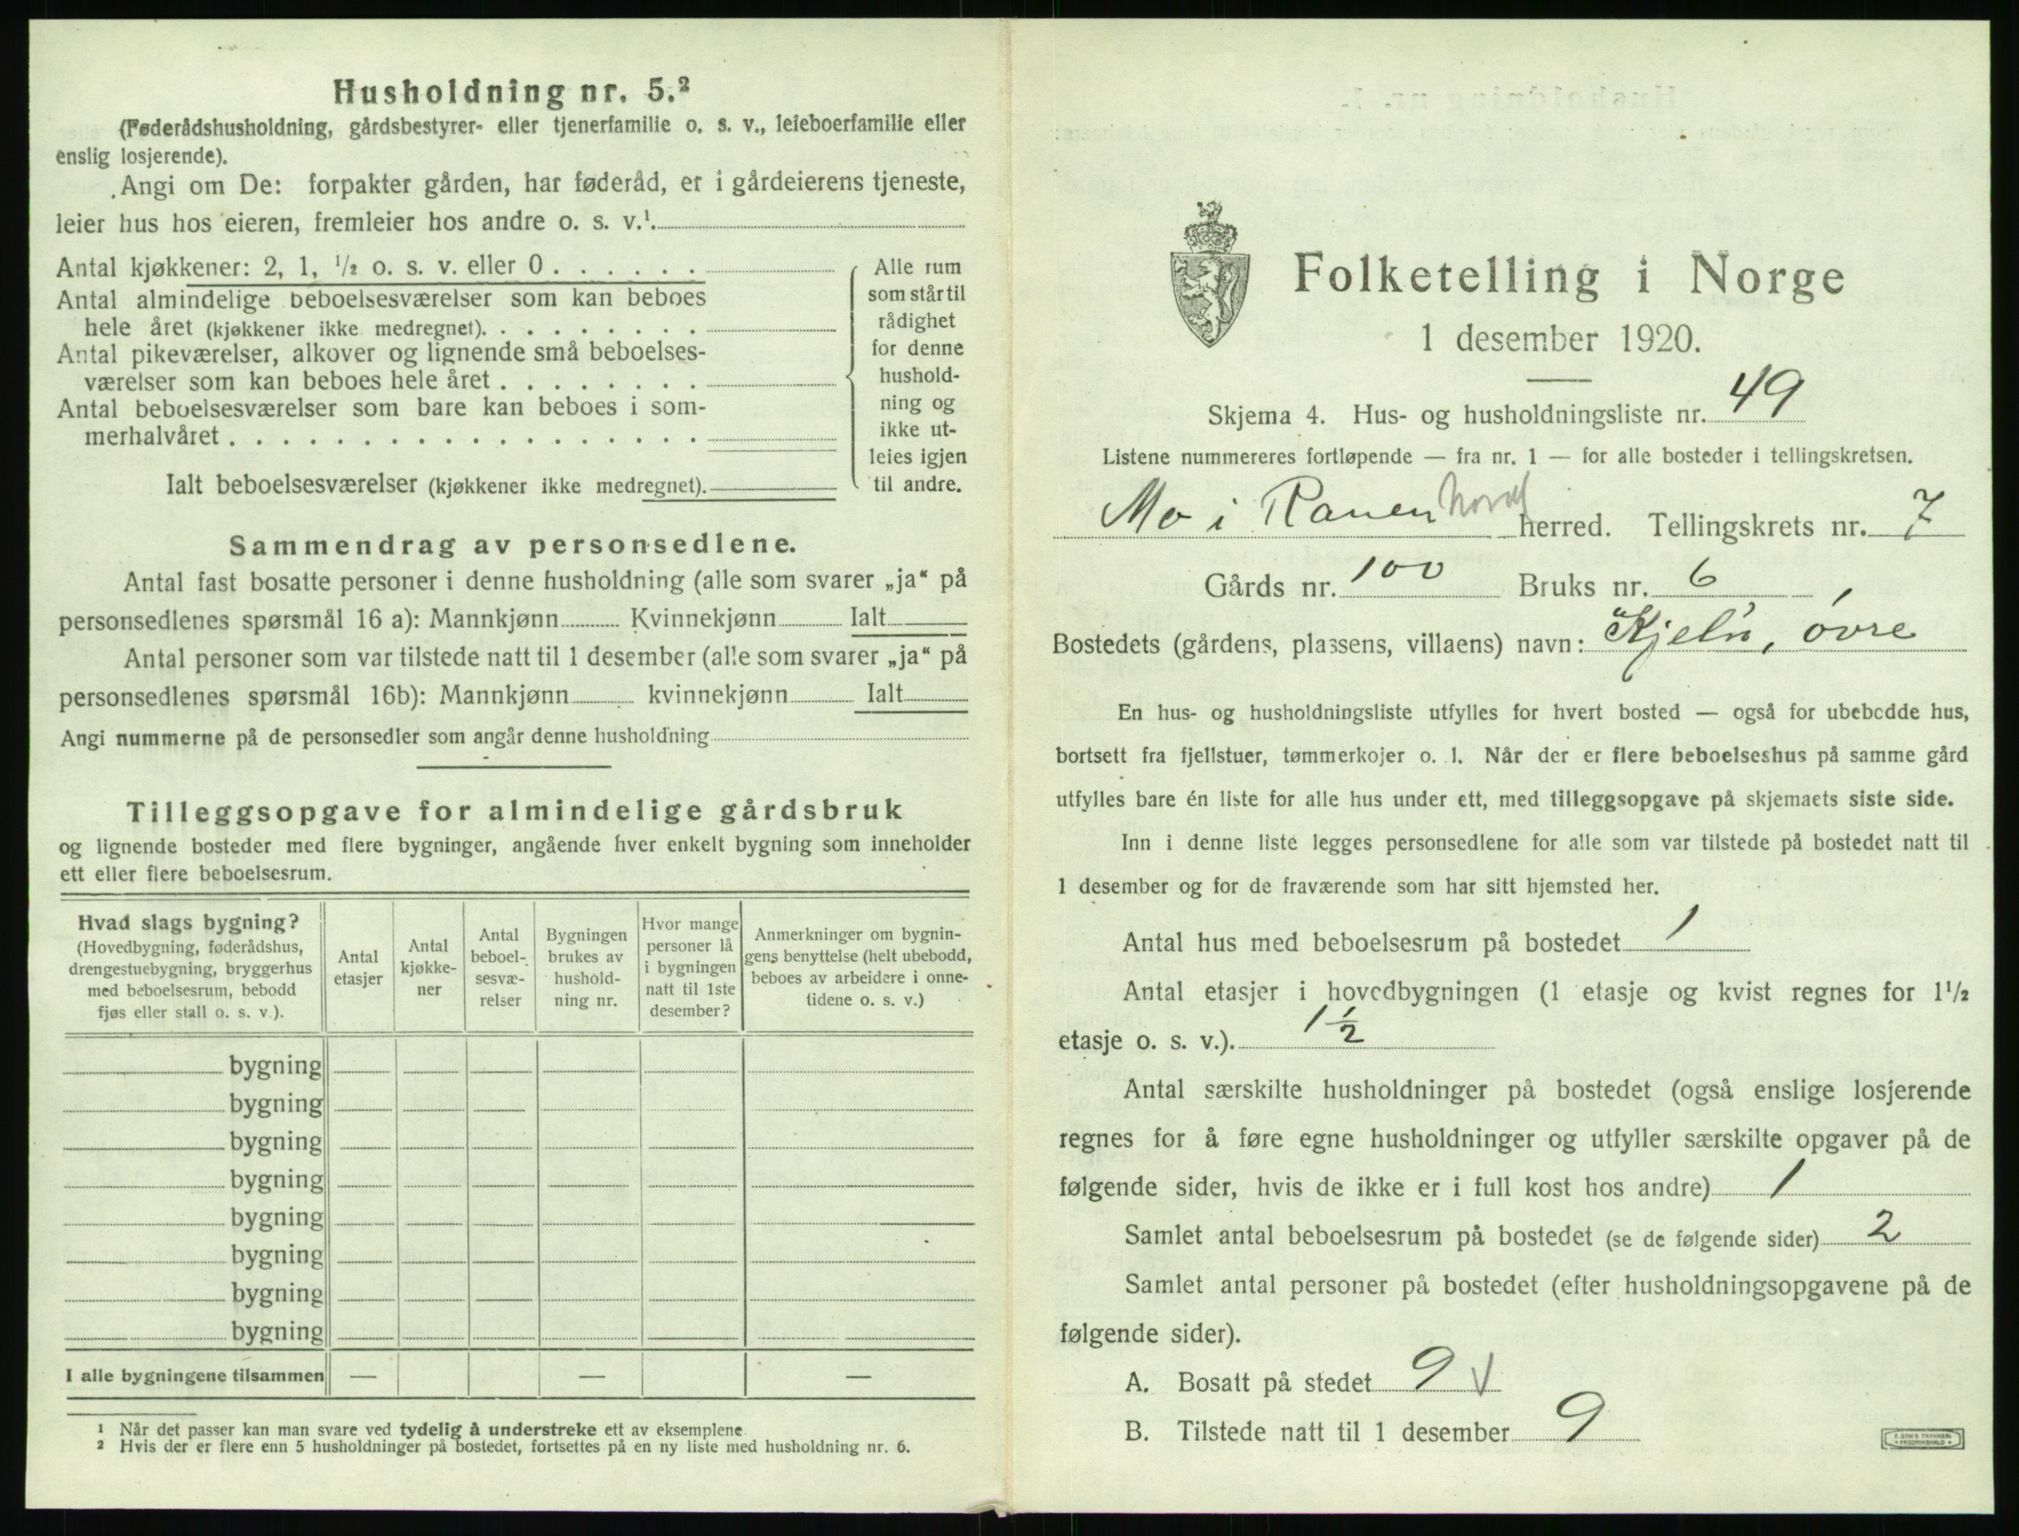 Husholdning nr. 5.²
(Føderådshusholdning, gårdsbestyrer- eller tjenerfamilie o. s. v., leieboerfamilie eller
enslig losjerende).
Angi om De: forpakter gården, har føderåd, er i gårdeierens tjeneste,
leier hus hos eieren, fremleier hos andre o. s. v.¹
Antal kjøkkener: 2, 1, ½ o. s. v. eller 0 . . . . . .
Antal almindelige beboelsesværelser som kan beboes
hele året (kjøkkener ikke medregnet). . . . . . . . .
Antal pikeværelser, alkover og lignende små beboelses-
værelser som kan beboes hele året . . . . . . . .
Antal beboelsesværelser som bare kan beboes i som-
merhalvåret . . . . . . . . . . . . . . . . . .
Ialt beboelsesværelser (kjøkkener ikke medregnet).
Alle rum
som står til
rådighet
for denne
hushold-
ning og
ikke ut-
leies igjen
til andre.
Sammendrag av personsedlene.
Antal fast bosatte personer i denne husholdning (alle som svarer „ja“ på
personsedlenes spørsmål 16 a): Mannkjønn Kvinnekjønn Ialt
Antal personer som var tilstede natt til 1 desember (alle som svarer „ja“ på
personsedlenes spørsmål 16b): Mannkjønn kvinnekjønn Ialt
Angi nummerne på de personsedler som angår denne husholdning
Tilleggsopgave for almindelige gårdsbruk
og lignende bosteder med flere bygninger, angående hver enkelt bygning som inneholder
ett eller flere beboelsesrum.
Hvad slags bygning?
(Hovedbygning, føderådshus,
drengestuebygning, bryggerhus
med beboelsesrum, bebodd
fjøs eller stall o. s. v.).
Antal
etasjer
Antal
kjøkke-
ner
Antal
beboel-
sesvæ-
relser
Bygningen
brukes av
hushold-
ning nr.
Hvor mange
personer lå
i bygningen
natt til 1ste
desember?
Anmerkninger om bygnin-
gens benyttelse (helt ubebodd,
beboes av arbeidere i onne-
tidene o. s. v.)
bygning
bygning
bygning
bygning
bygning
bygning
bygning
bygning
I alle bygningene tilsammen — — —
¹ Når det passer kan man svare ved tydelig å understreke ett av eksemplene
² Hvis der er flere enn 5 husholdninger på bostedet, fortsettes på en ny liste med husholdning nr. 6.
Folketelling i Norge
1 desember 1920.
Skjema 4. Hus- og husholdningsliste nr. 49
Listene nummereres fortløpende — fra nr. 1 — for alle bosteder i tellingskretsen.
Mo i Ranen Nord herred. Tellingskrets nr. 7
Gårds nr. 100 Bruks nr. 6
Bostedets (gårdens, plassens, villaens) navn: Kjeln, øvre
En hus- og husholdningsliste utfylles for hvert bosted — også for ubebodde hus,
bortsett fra fjellstuer, tømmerkojer o. l. Når der er flere beboelseshus på samme gård
utfylles bare én liste for alle hus under ett, med tilleggsopgave på skjemaets siste side.
Inn i denne liste legges personsedlene for alle som var tilstede på bostedet natt til
1 desember og for de fraværende som har sitt hjemsted her.
Antal hus med beboelsesrum på bostedet 1
Antal etasjer i hovedbygningen (1 etasje og kvist regnes for 1½
etasje o. s. v.). 1½
Antal særskilte husholdninger på bostedet (også enslige losjerende
regnes for å føre egne husholdninger og utfyller særskilte opgaver på de
følgende sider, hvis de ikke er i full kost hos andre) 1
Samlet antal beboelsesrum på bostedet (se de følgende sider) 2
Samlet antal personer på bostedet (efter husholdningsopgavene på de
følgende sider).
A. Bosatt på stedet 9 V
B. Tilstede natt til 1 desember 9